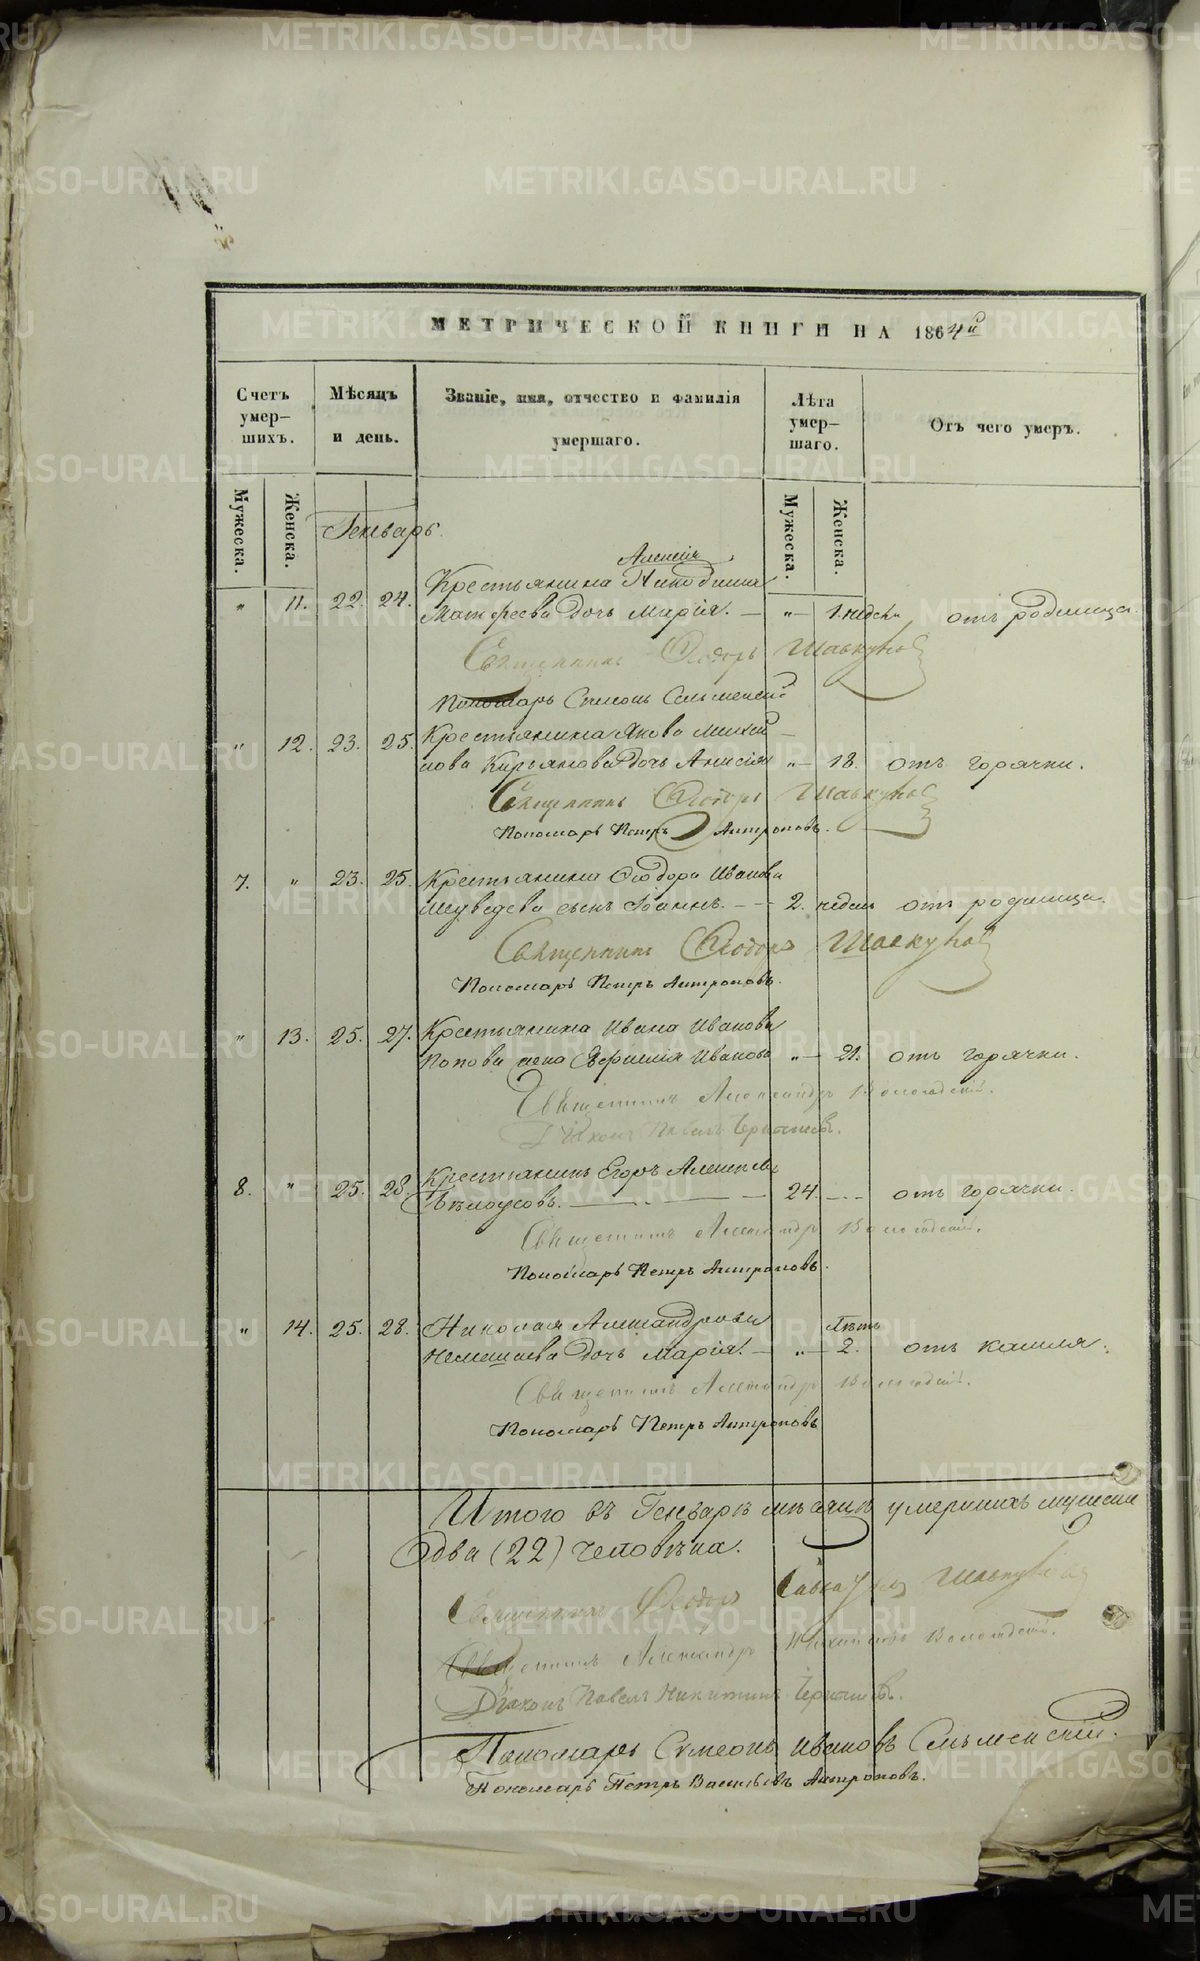 МЕТРИЧЕСКОЙ КНИГИ НА 1864й
Счетъ умер–шихъ.
Мѣсяцъ и день.
Званіе, имя, отчество и фамилія умершаго.
Лѣта умер–шаго.
Отъ чего умеръ.
Мужеска. Женска. Мужеска. Женска.
Генварь.
Алексія
" 11. 22. 24. Крестьянина Никодима
Матфеева дочь Марія. — " — 1. недели отъ родимца.
Священникъ Феодоръ Шавкуновъ
Пономарь Симеонъ Сельменскій
" 12. 23. 25. Крестьянина Якова Михай–
лова Кирьянова дочь Анисія " — 18. отъ горячки.
Священникъ Феодоръ Шавкуновъ
Пономарь Петръ Антроповъ.
7. " 23. 25. Крестьянина Феодора Иванова
Медведева сынъ Іоаннъ. — — 2. недели отъ родимца.
Священникъ Феодоръ Шавкуновъ
Пономарь Петръ Антроповъ.
" 13. 25. 27. Крестьянина Ивана Иванова
Попова жена Евфимія Иванова " — 21. отъ горячки.
Священникъ Александръ Вологодскій.
Діаконъ Павелъ
8. " 25. 28. Крестьянинъ Егоръ Алексѣевъ
Бѣлоусовъ. — 24. — отъ горячки.
Священникъ Александръ Вологодскій.
Пономарь Петръ Антроповъ.
" 14. 25. 28. Николая Александрова лѣтъ
Немешаева дочь Марія. — " — 2. отъ кашля.
Священникъ Александръ Вологодскій.
Пономарь Петръ Антроповъ
Итого въ Генварѣ мѣсяцѣ умершихъ
два (22) человѣка.
Священникъ Феодоръ Савва Шавкуновъ
Священникъ Александръ Вологодскій.
Діаконъ Павелъ Никитинъ
Пономарь Сѵмеонъ Ивановъ Сельменскій.
Пономарь Петръ Васильевъ Антроповъ.
METRIKI.GASO-URAL.RU